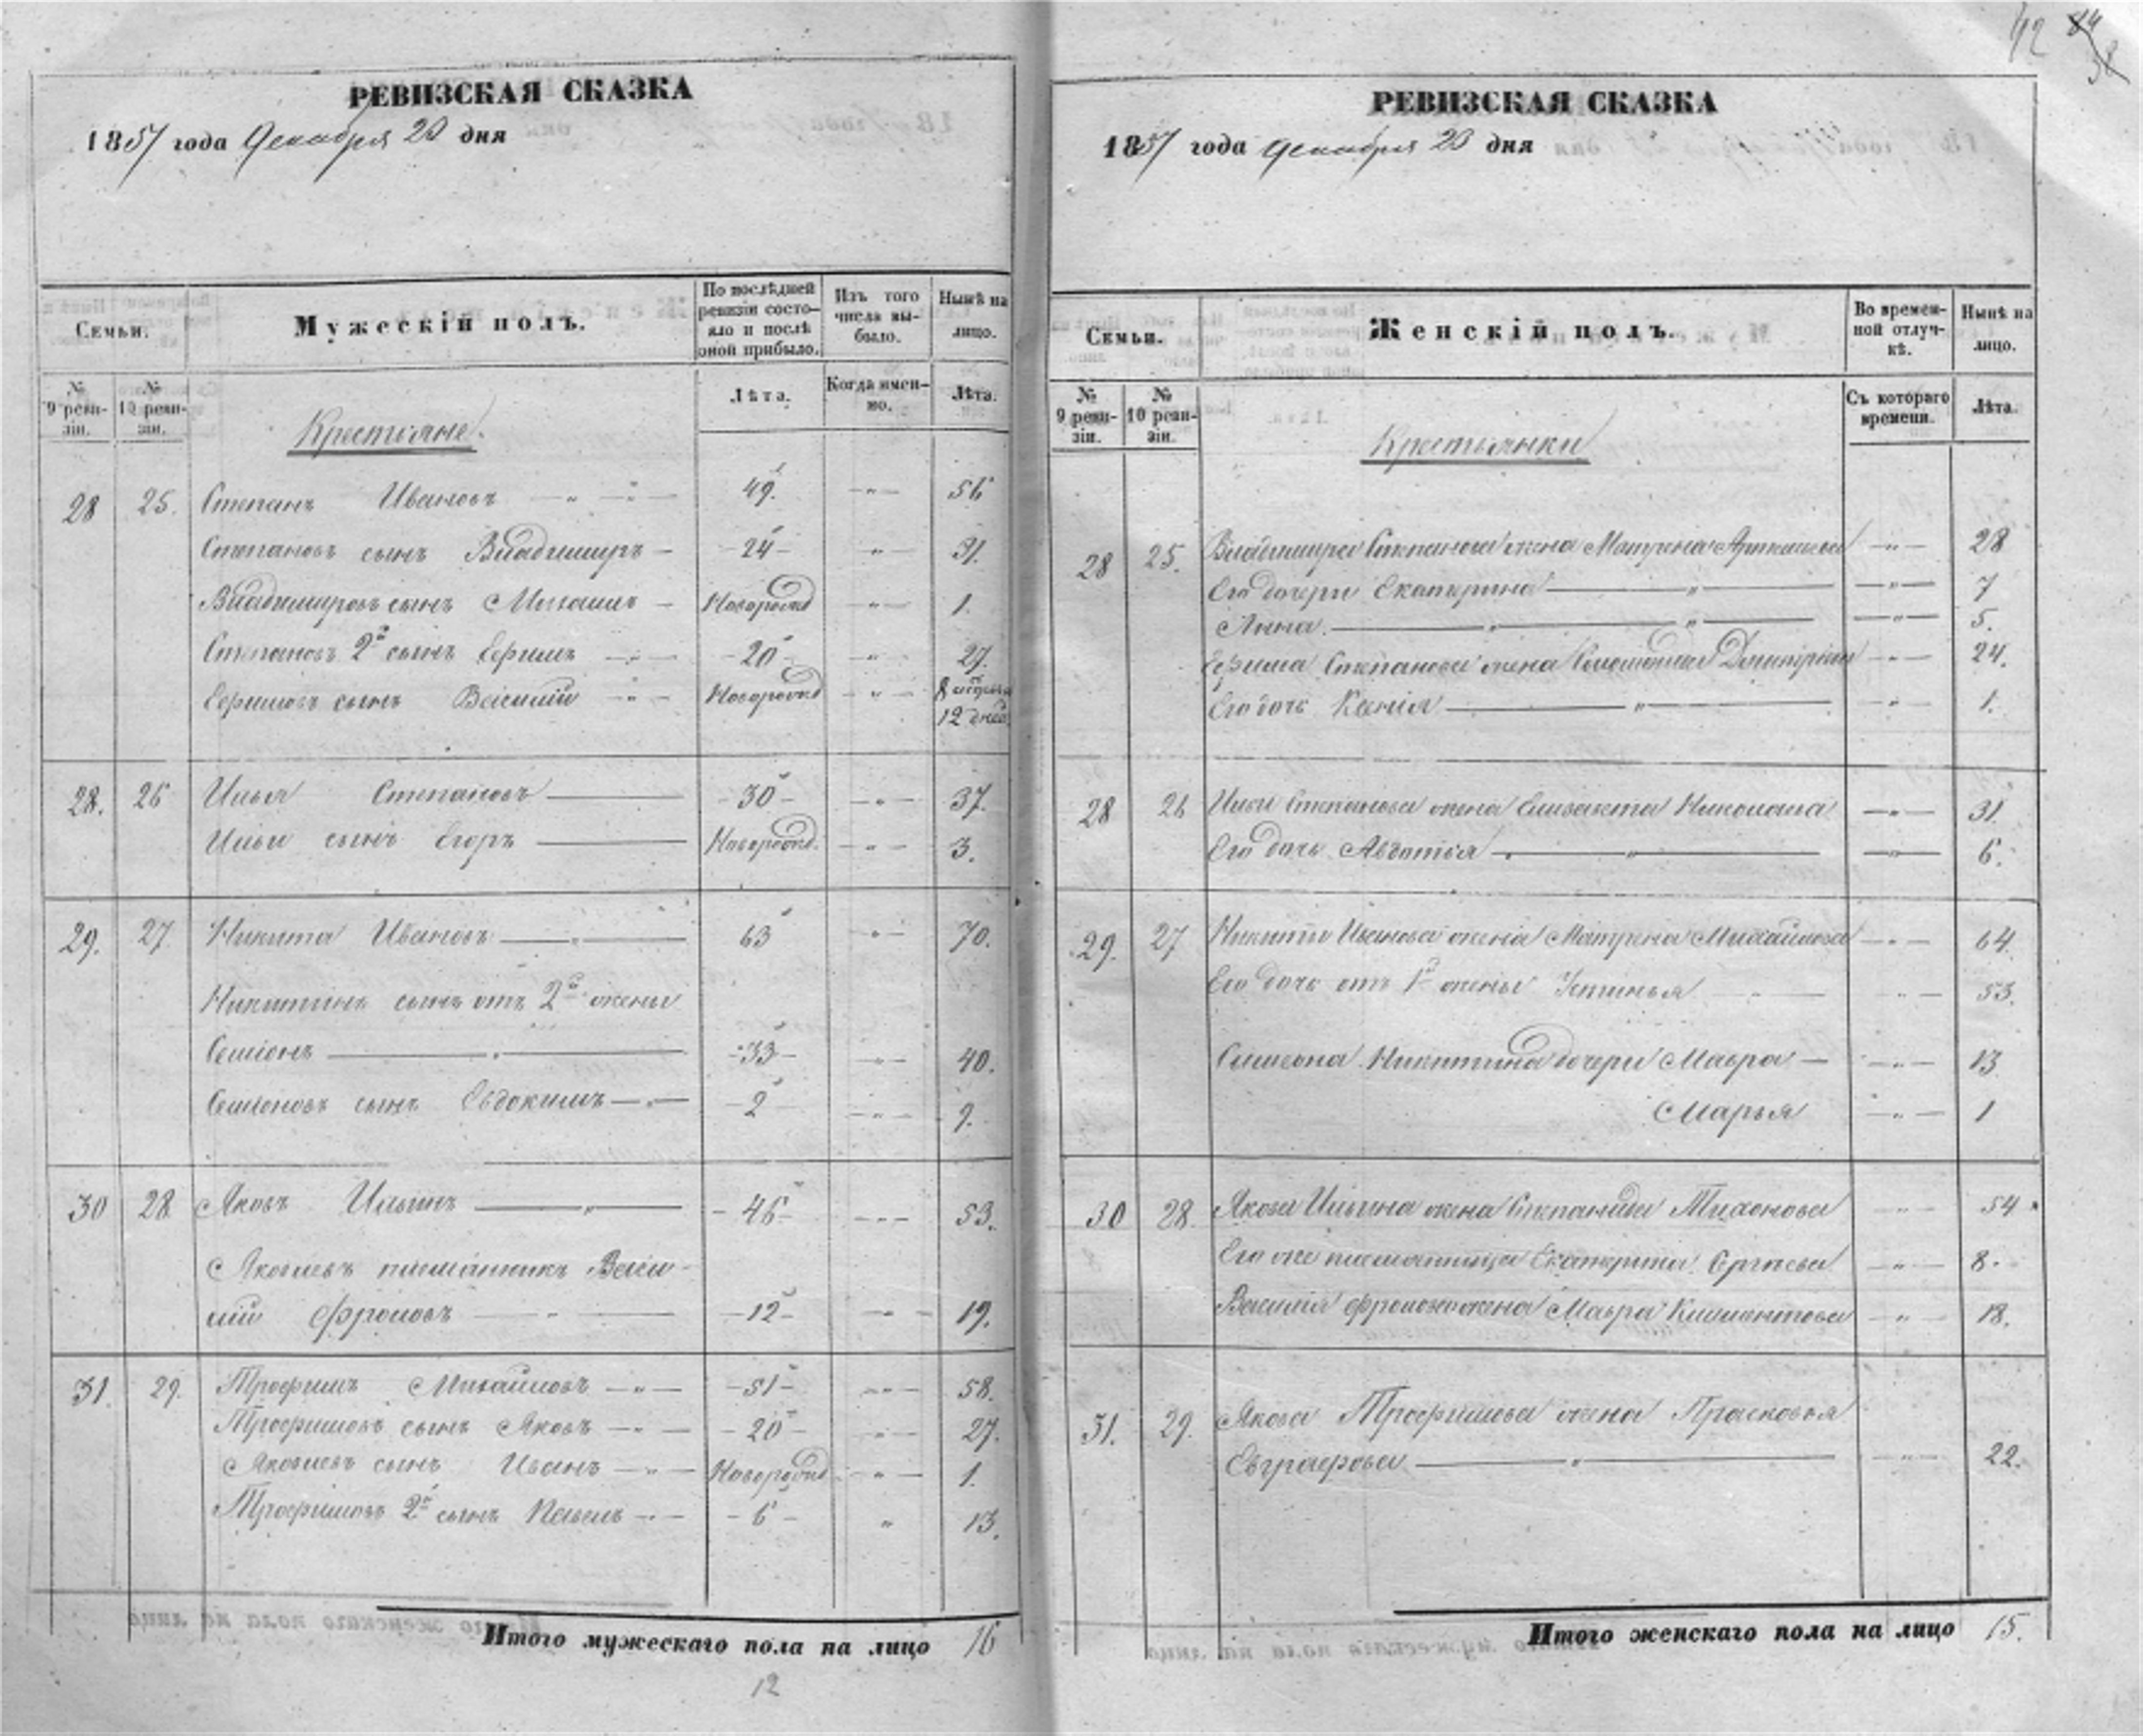 РЕВИЗСКАЯ СКАЗКА
1857 года Декабря 20 дня
Семьи.
Мужескій полъ.
По послѣдней ревизіи состояло и послѣ оной прибыло.
Изъ того числа выбыло.
Нынѣ на лицо.
№ 9 ревизіи.
№ 10 ревизіи.
Лѣта.
Когда именно.
Лѣта.
Крестьяне.
28 25. Степанъ Ивановъ — „ — 49. — „ — 56
Степановъ сынъ Владимиръ — 24 — „ 31.
Владимировъ сынъ Михаилъ — Новорожд — „ — 1.
Степановъ 2й сынъ Ефимъ — 20 — „ — 27.
Ефимовъ сынъ Василий — „ — Новорожд — „ — 8 12 дней
28. 26 Илья Степановъ — 30 — „ — 37.
Ильи сынъ Егоръ — Новорожд. — „ — 3.
29. 27 Никита Ивановъ — „ — 63 — „ — 70.
Никитинъ сынъ отъ 2й жены
Семіонъ — „ — 33 — „ — 40.
Семіоновъ сынъ Евдокимъ — „ — 2 — „ — 9.
30 28 Яковъ Ильинъ — „ — 46 — „ — 53.
Яковлевъ племянникъ Васи-
лій Фроловъ — „ — 12 — „ — 19.
31. 29. Трофимъ Михайловъ — „ — 51 — „ — 58.
Трофимовъ сынъ Яковъ — „ — 20 — „ — 27.
Яковлевъ сынъ Иванъ — „ — Новорожд — „ — 1.
Трофимовъ 2й сынъ Павелъ — „ — 6 — „ 13.
Итого мужескаго пола на лицо 16
12
42 84 38
РЕВИЗСКАЯ СКАЗКА
1857 года Декабря 20 дня
Семьи.
Женскій полъ.
Во временной отлучкѣ.
Нынѣ на лицо.
№ 9 ревизіи.
№ 10 ревизіи.
Съ котораго времени.
Лѣта.
Крестьянки
28 25. Владимира Степанова жена Матрена — „ — 28
Его дочери Екатерина — „ — 7
Анна. — „ — 5.
Ефима Степанова жена — „ — 24.
Его дочь Ксенія — „ — 1.
28 26 Ильи Степанова жена Елизавета Николаева — „ — 31
Его дочь Авдотья — „ — 6.
29. 27 Никиты Иванова жена Матрена Михайлова — „ — 64.
Его дочь отъ 1й жены Устинья — „ — 53.
Семиона Никитина дочери Мавра — „ — 13
Марья — „ — 1
30 28. Якова Ильина жена Степанида Тихонова — „ — 54.
Его же племянница Екатерина Сргѣева — „ — 8.
Василія Фролова жена Мавра Климонтова — „ — 18.
31. 29. Якова Трофимова жена Прасковья
Евграфова — „ — 22.
Итого женскаго пола на лицо 15.